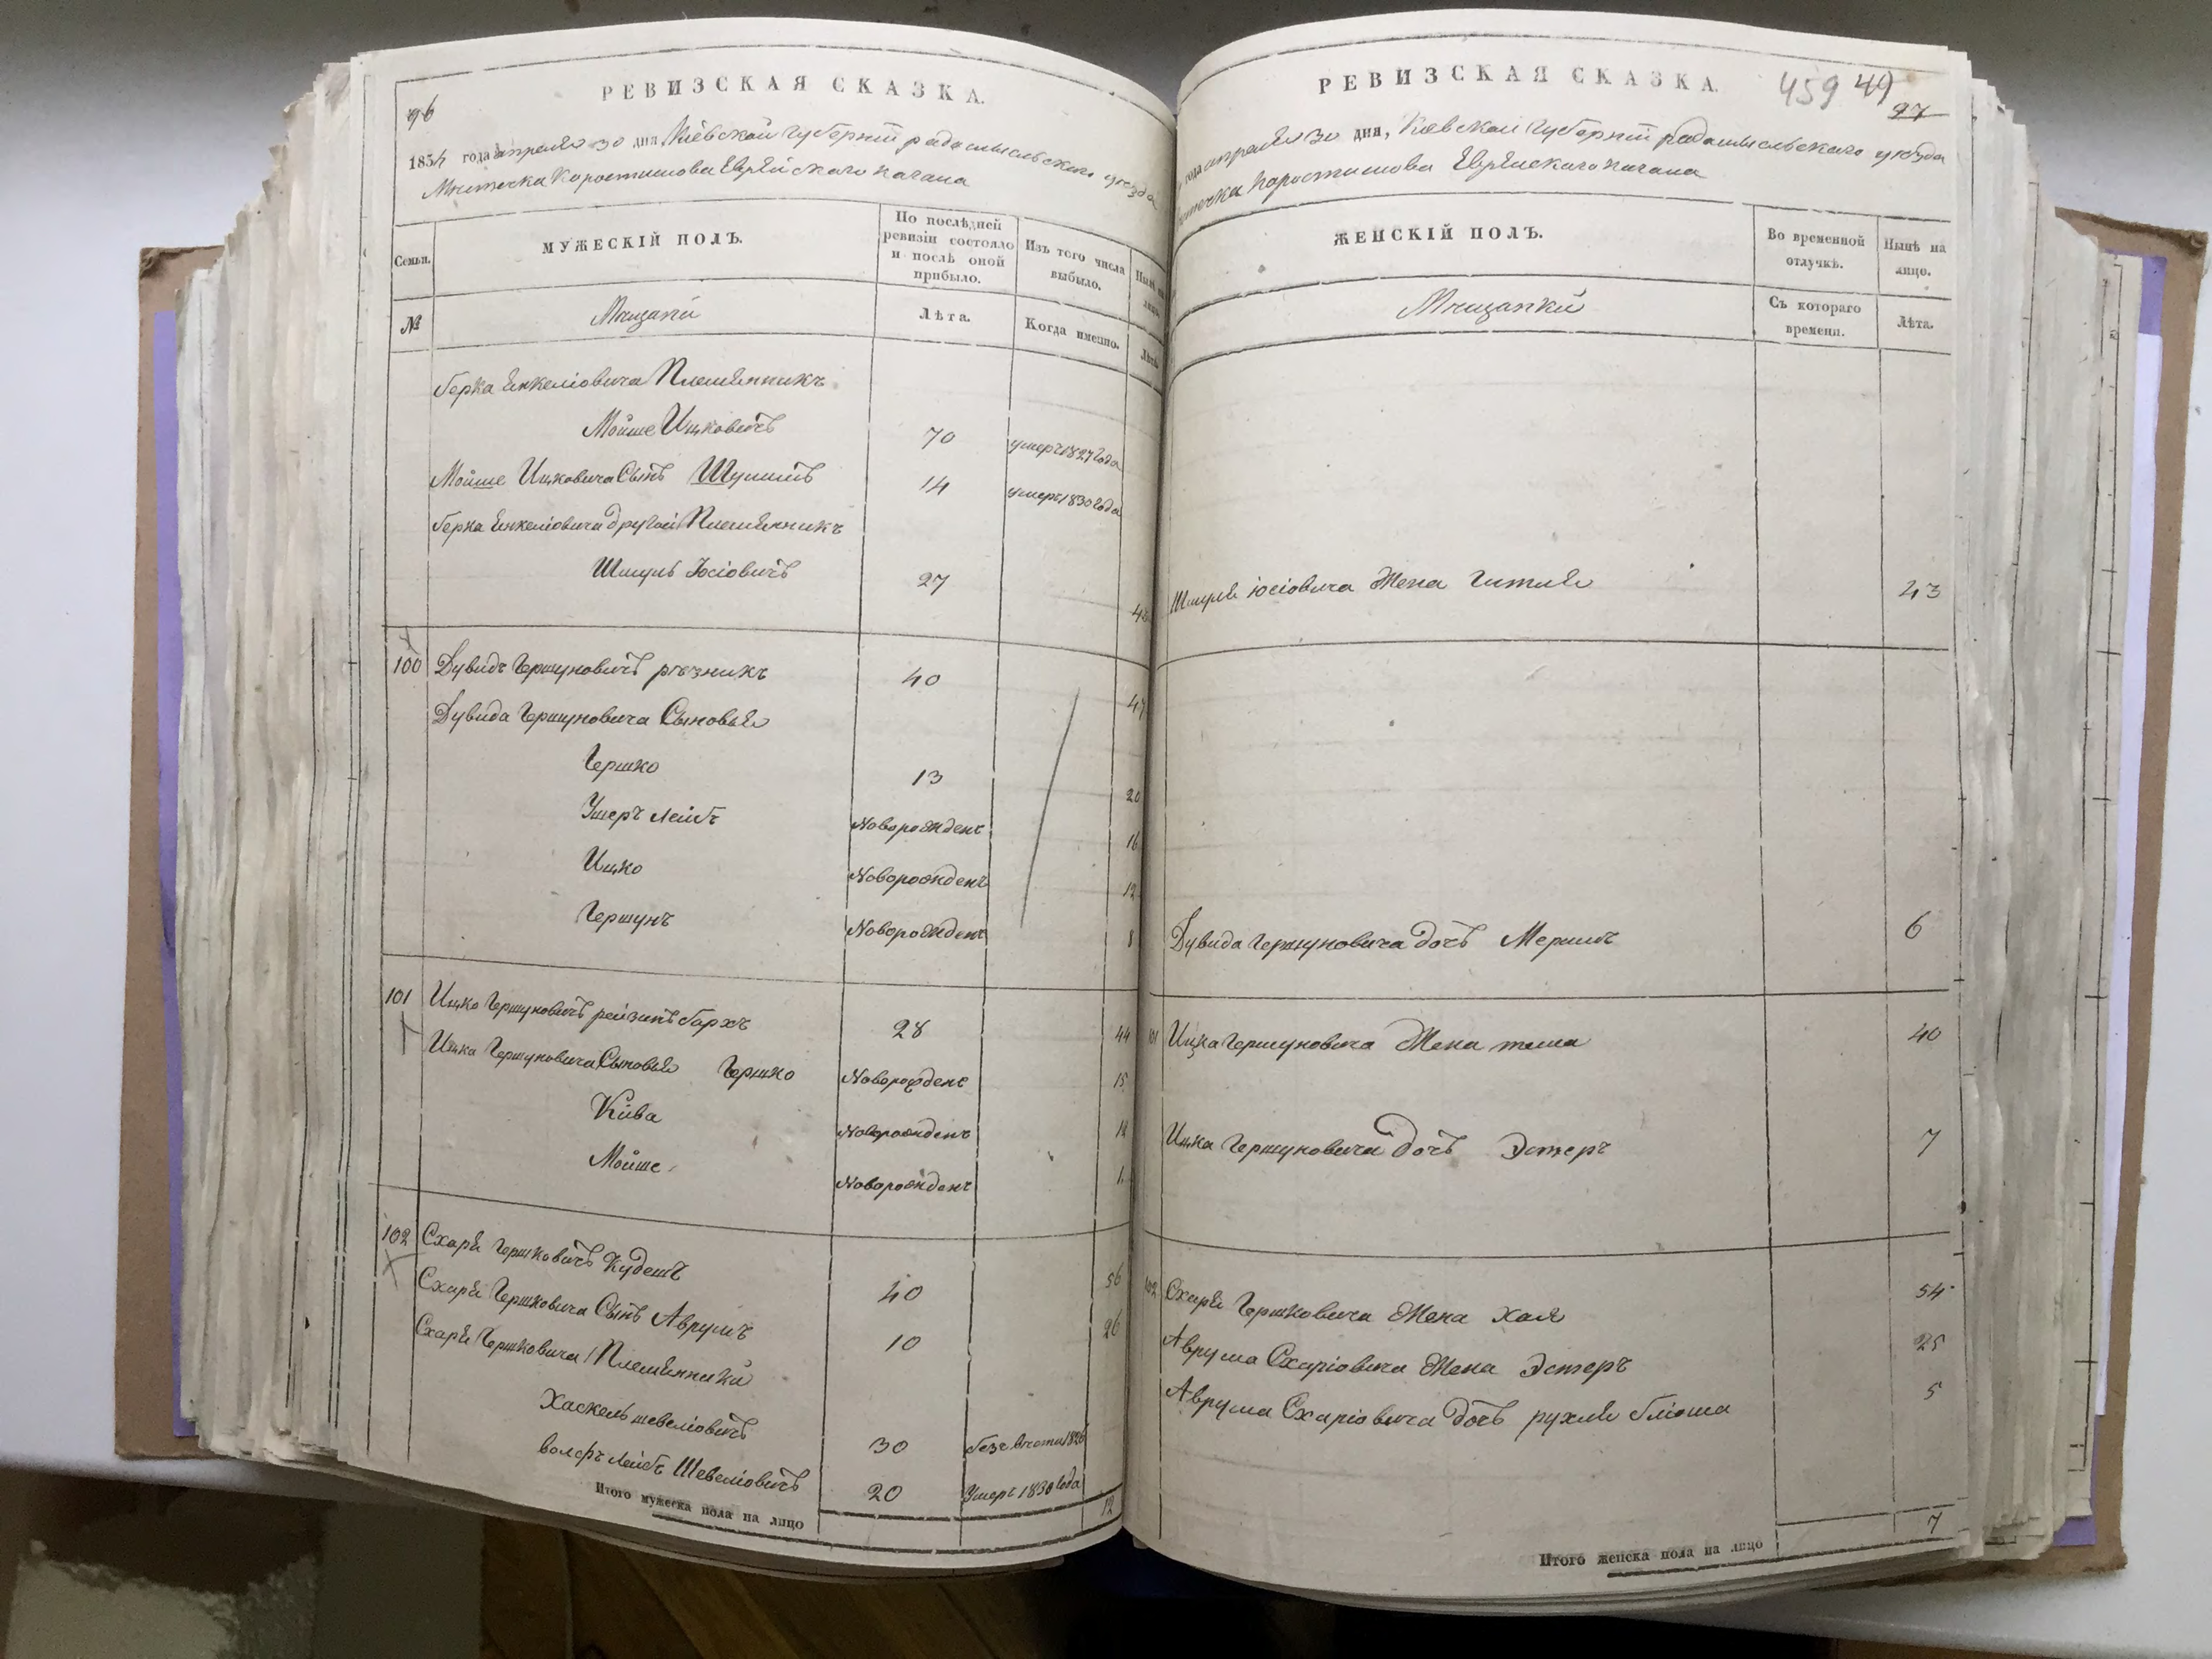 РЕВИЗСКАЯ СКАЗКА.
96
1854 года апреля 30 дня, Киевской губернии радомысльского уезда
Местечка Коростишова Еврейского кагала
Семьи.
МУЖЕСКІЙ ПОЛЪ.
По послѣдней ревизіи состояло и послѣ оной прибыло.
Изъ того числа выбыло.
Нынѣ на лицо.
№
Мещане
Лѣта.
Когда именно.
Лѣта.
Берка Енкеліовича Племенникъ
Мойше Ицковичъ 70 умеръ 1827 года
Мойше Ицковича Сынъ Шулимъ 14 умеръ 1830 года
Берка Енкеліовича другой Племенникъ
Шмуль Юсіовичъ 27
100 Дувидъ Гершуновичъ рѣзникъ 40 47
Дувида Гершуновича Сыновья
Гершко 13 20
Ушеръ Лейбъ Новорожденъ 16
Ицко Новорожденъ 12
Гершунъ Новорожденъ 8
101 Ицко Гершуновичъ 28 44
Ицка Гершуновича Сыновья Гершко Новорожденъ 15
Кива Новорожденъ
Мойше Новорожденъ
102 Схаръя Гершковичъ Кудешъ 40 56
Схаръя Гершковича Сынъ Аврумъ 10 26
Схаръя Гершковича Племенники
Хаскель шевеліовичъ 30
волфъ Лейбъ Шевеліовичъ 20 Умеръ 1830 года
Итого мужеска пола на лицо 12
РЕВИЗСКАЯ СКАЗКА.
459 49
97
года апреля 30 дня, Киевской губернии радомысльского уезда
Коростишова Еврейского кагала
ЖЕНСКІЙ ПОЛЪ.
Во временной отлучкѣ.
Нынѣ на лицо.
Мещанки
Съ котораго времени.
Лѣта.
Шмуля Юсіовича Жена Гитля 43
Дувида Гершуновича дочь Меримъ 6
101 Ицка Гершуновича Жена 40
Ицка Гершуновича дочь Эстеръ 7
102 Схаръя Гершковича Жена Хая 54
Аврума Схаріовича Жена Эстеръ 25
Аврума Схаріовича дочь рухля бліома 5
Итого женска пола на лицо 7